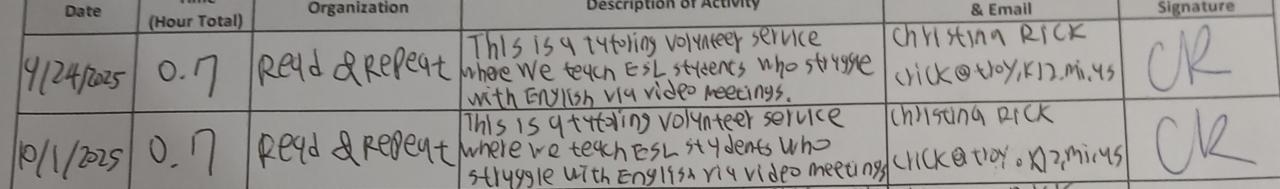 Date
(Hour Total)
Organization
Description of Activity
& Email
Signature
9/24/2025
0.7
Read & Repeat
This is a tutoring volunteer service
where we teach ESL students who struggle
with English via video meetings.
Christina RICK
crick@troy.k12.mi.us
CR
10/1/2025
0.7
Read & Repeat
This is a tutoring volunteer service
where we teach ESL students who
struggle with English via video meetings
Christina RICK
crick@troy.k12.mi.us
CR